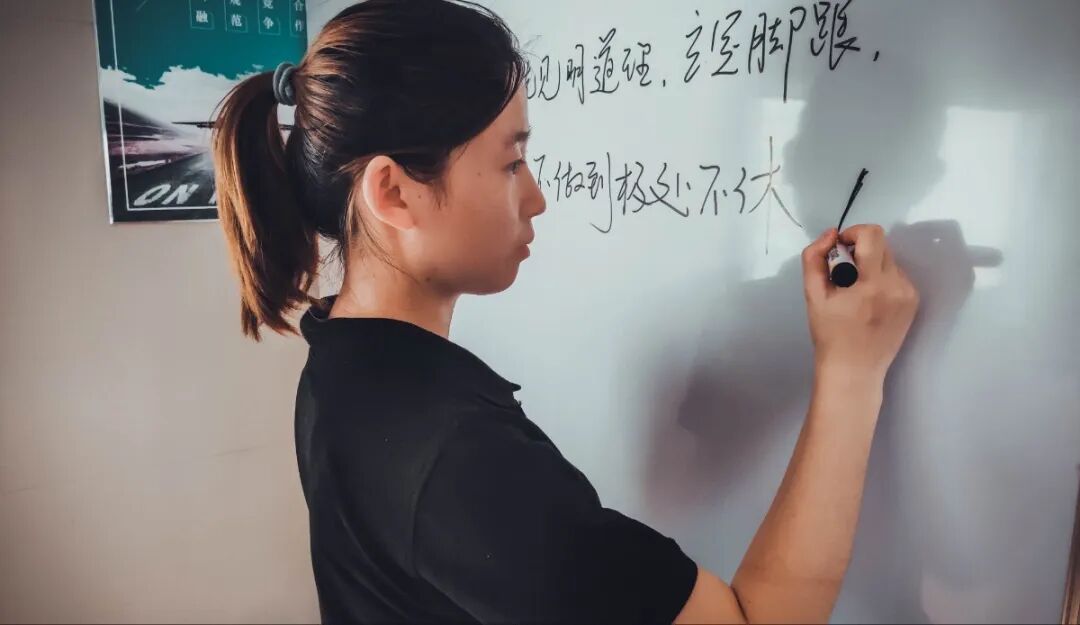 融
规范
竞争
合作
ON
见明道理,立脚跟,
不做到极处不休